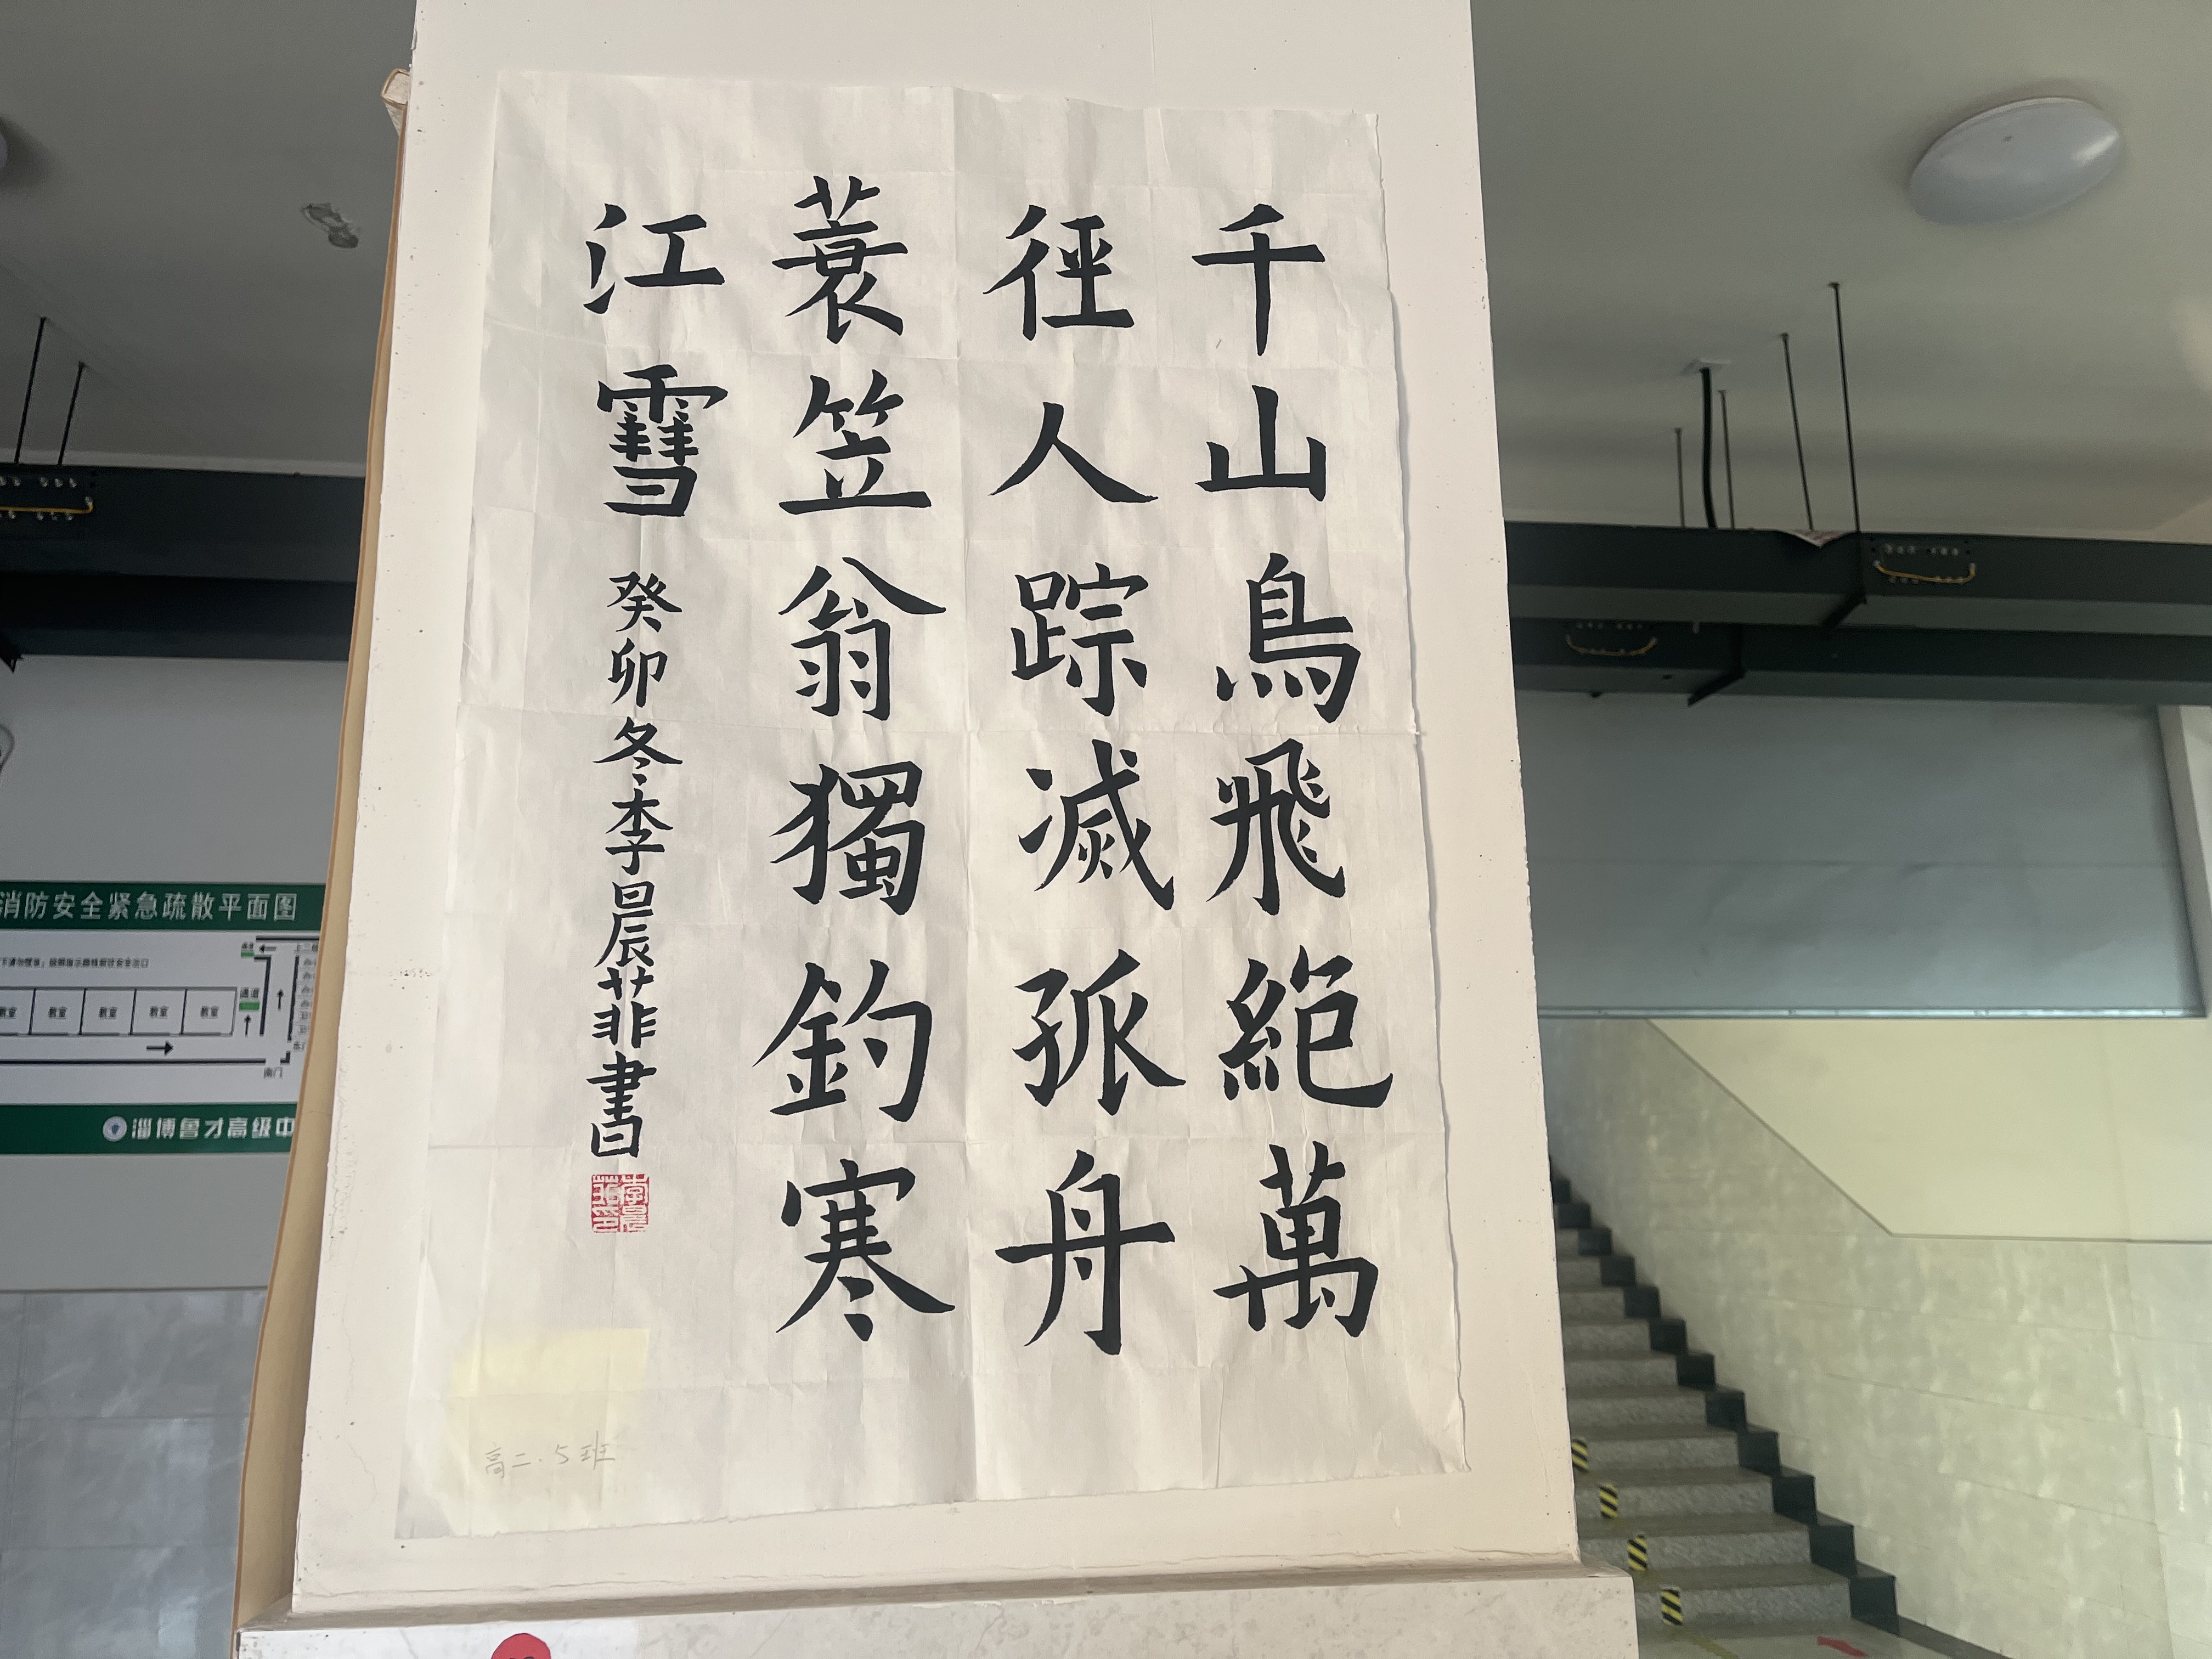 千山鳥飛絕萬
徑人踪滅孤舟
蓑笠翁獨釣寒
江雪
癸卯冬李晨菲書
李晨菲印
高二.5班
消防安全紧急疏散平面图
教室 教室 教室 教室 教室
通道
南门
淄博鲁才高级中